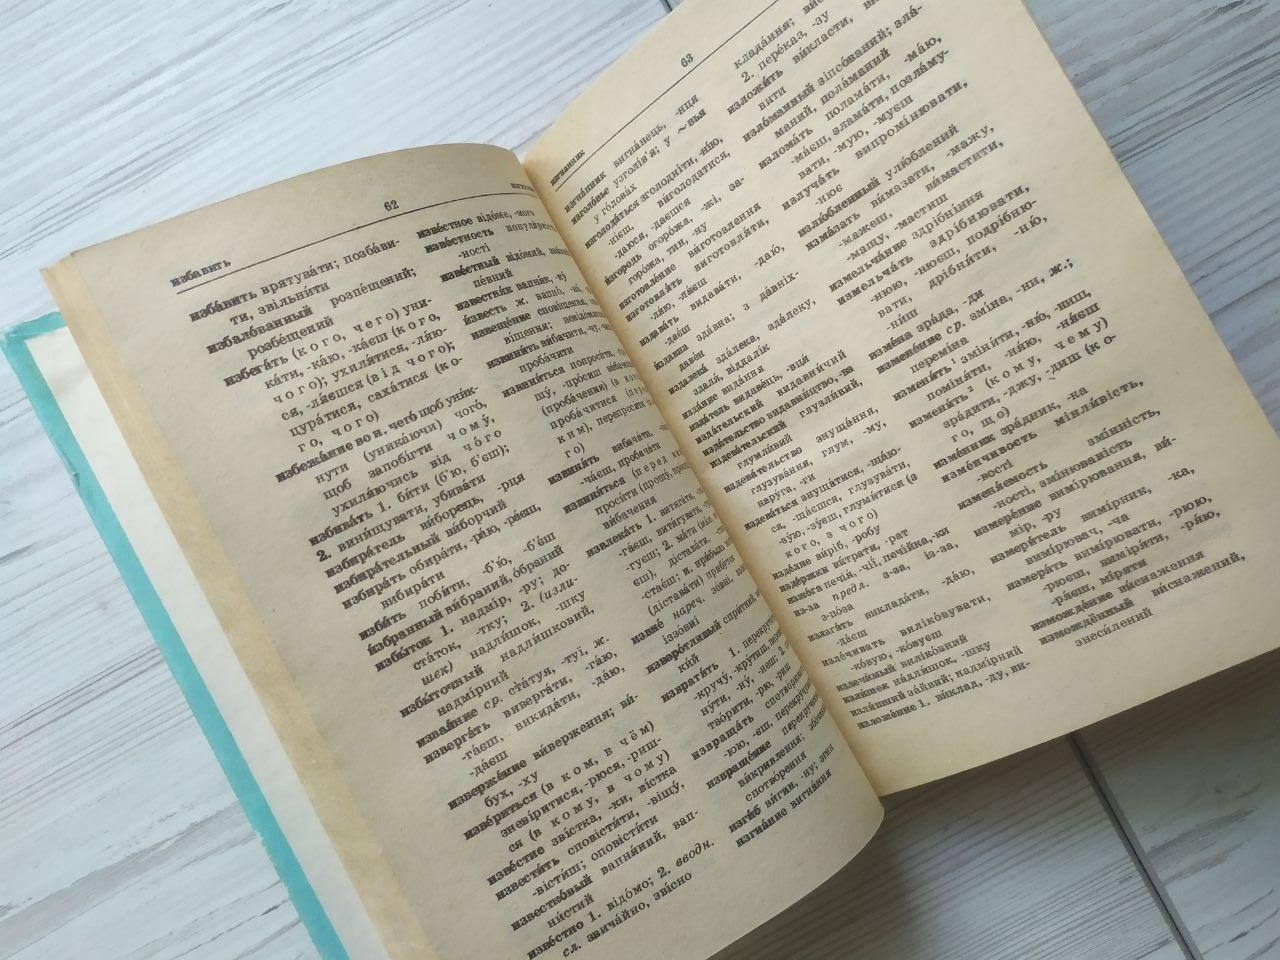 62
избавить
изба́вить врятува́ти; позба́ви-
ти, звільни́ти
избало́ванный розпе́щений;
розбе́щений
избега́ть (кого, чего) уни-
ка́ти, -ка́ю, -ка́єш (кого,
чого); ухиля́тися, -ля́ю-
ся, -ля́єшся (від чого);
цура́тися, саха́тися (ко-
го, чого)
избежа́ние во и. чего́ щоб уни́к-
нути (уника́ючи) чого,
щоб запобі́гти чому,
ухиля́ючись від чого
избива́ть 1. би́ти (б'ю, б'єш);
2. вини́щувати, убива́ти
избира́тель ви́борець, -рця
избира́тельный ви́борчий
избира́ть обира́ти, -ра́ю, -ра́єш,
вибира́ти
изби́ть поби́ти, -б'ю́, -б'є́ш
и́збранный ви́браний, о́браний
избы́ток 1. на́дмір, -ру; до-
ста́ток, -тку; 2. (изли-
шек) на́длишок, -шку
избы́точный надли́шковий,
надмі́рний
извая́ние ср. ста́туя, -туї, ж.
изверга́ть виверга́ти, -га́ю,
-га́єш, викида́ти, -да́ю,
-да́єш
изверже́ние ви́верження; ви́-
бух, -ху
изве́риться (в ком, в чём)
зневі́ритися, -рюся, -риш-
ся (в кому, в чому)
изве́стие зві́стка, -ки, ві́стка
извести́ть сповісти́ти, -віщу́,
-вісти́ш; оповісти́ти
известко́вый вапня́ний, вап-
ни́стий
изве́стно 1. відо́мо; 2. вводн.
сл. звича́йно, зві́сно
изве́стное відо́ме, -мого
изве́стность популя́рність,
-ності
изве́стный відо́мий,
пе́вний
известня́к вапня́к, -ку́
и́звесть ж. вапно́, -на́,
извеще́ние спові́щення,
ві́щення;
извини́ть ви́бачити, -чу,
проба́чити
извини́ться попроси́ти,
-шу́, -про́сиш
(проба́чення) (в кого)
проба́читися (перед
ким), перепроси́ти (ко-
го)
извиня́ть вибача́ти,
-ча́єш, пробача́ти
извиня́ться (перед
проси́ти (прошу́,
ви́бачення
извлека́ть 1. витяга́ти,
-га́єш, витя́гувати,
-гуєш; 2. ма́ти (ма́ю,
єш), дістава́ти,
-стає́ш; и. прибыль
(дістава́ти) прибу́ток
извне́ нареч. зо́вні,
ізо́вні
изворо́тливый спри́тний,
ки́й
изврати́ть 1. перекрути́ти,
-кручу́, -кру́тиш,
ну́ти, -ну́, -не́ш; 2.
твори́ти, -рю́, -ри́ш
извраща́ть спотво́рювати,
-юю, -єш, перекру́чувати
извраще́ние перекру́чення,
викри́влення;
спотво́рення
изги́б ви́гин, -ну;
изгна́ние вигна́ння
63
изгнанник
изгна́нник вигна́нець, -нця
изголо́вье узголі́в'я; у ~вья
у голова́х
изголода́ться зголодні́ти, -ні́ю,
-ні́єш, ви́голодатися,
-даюся, -даєшся
и́згородь огоро́жа, -жі, за-
горо́жа, тин, -ну
изготовле́ние ви́готовлення
изготовля́ть виготовля́ти,
-ля́ю, -ля́єш
издава́ть видава́ти, -даю́,
-дає́ш
и́здавна зда́вна; з да́вніх-
даве́н
издалека́ здалека́, здале́ку,
здаля́, відда́лік
изда́ние вида́ння
изда́тель видаве́ць, -вця́
изда́тельский видавни́чий
изда́тельство видавни́цтво, -ва
издева́тельский глузли́вий,
глумли́вий
издева́тельство знуща́ння,
глузува́ння, глум, -му,
нару́га, -ги
издева́ться знуща́тися, -ща́ю-
ся, -ща́єшся, глузува́ти,
-зу́ю, -зу́єш, глуми́тися (з
кого, з чого)
изде́лие ви́ріб, -робу
изде́ржки ви́трати, -рат
изжо́га печія́, -чії́, печі́йка, -ки
из-за предл. з-за, із-за,
з-по́за
излага́ть виклада́ти, -да́ю,
-да́єш
изле́чивать виліко́вувати,
-ко́вую, -ко́вуєш
излечи́мый виліко́вний
изли́шек на́длишок, -шку
изли́шний за́йвий; надмі́рний
изложе́ние 1. ви́клад, -ду, ви́-
клада́ння;
2. пере́каз, -зу
изложи́ть ви́класти,
вити
изло́манный зіпсо́ваний; зла́-
маний, пола́маний
излома́ть полама́ти, -ма́ю,
-ма́єш, злама́ти, позла́му-
вати, -мую, -муєш
излуча́ть випромі́нювати,
-нює
излю́бленный улю́блений
изма́зать ви́мазати, -мажу,
-мажеш, ви́мастити,
-мащу, -мастиш
измельча́ние здрібні́ння
измельча́ть здрі́бнювати,
-нюю, -нюєш, подрі́бню-
вати, дрібни́ти, -ню́,
-ни́ш
изме́на зра́да, -ди
измене́ние ср. змі́на, -ни, ж.;
перемі́на
измени́ть¹ зміни́ти, -ню́, -ниш,
поміня́ти, -ня́ю, -ня́єш
измени́ть² (кому, чему)
зра́дити, -джу, -диш (ко-
го, що)
изме́нник зра́дник, -ка
изме́нчивость мінли́вість,
-вості
изменя́емость змі́нність,
-ності, змі́нюваність
измере́ние вимі́рювання, ви́-
мір, -ру
измери́тель вимі́рник, -ка,
вимі́рювач, -ча
измеря́ть вимі́рювати, -рюю,
-рюєш, виміря́ти, -ря́ю,
-ря́єш, мі́ряти
изможде́ние ви́снаження
измождённый ви́снажений,
знеси́лений